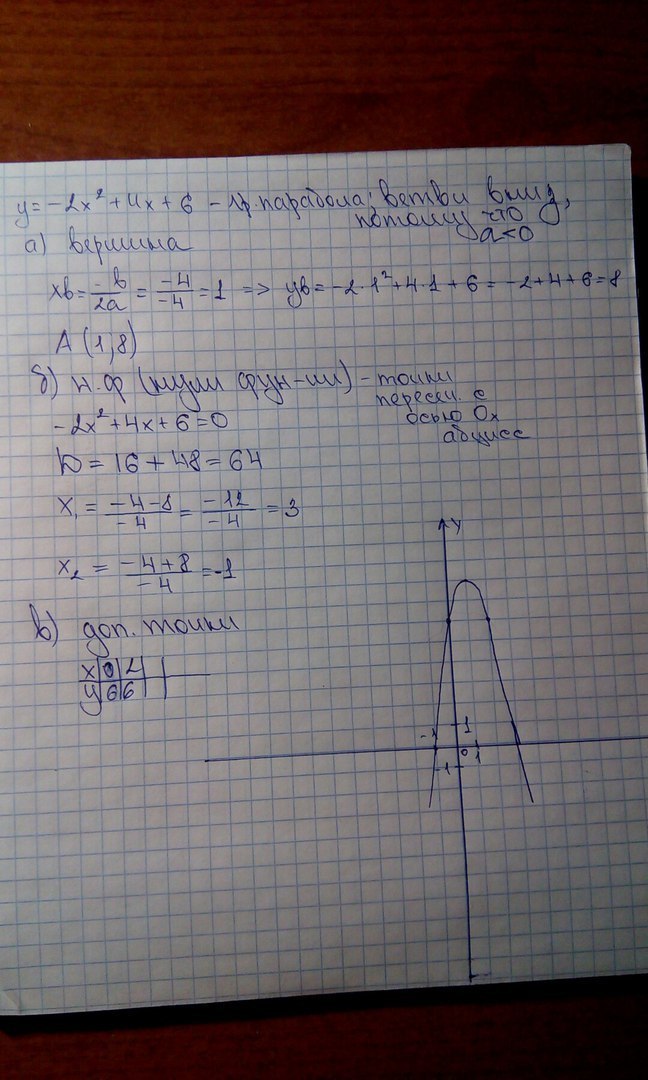 y = -2x² + 4x + 6 - гр. парабола; ветви вниз,
потому что
a<0
а) вершина
xв = -b/2a = -4/-4 = 1 => yв = -2·1² + 4·1 + 6 = -2+4+6=8
A (1,8)
б) н.ф (нули фун-ии) - точки
пересеч. с
осью Ox
абцисс
-2x² + 4x + 6 = 0
D = 16 + 48 = 64
x₁ = -4-8/-4 = -12/-4 = 3
x₂ = -4+8/-4 = -1
в) доп. точки
x 0 2
y 6 6
y
-1 1
0 1
-1